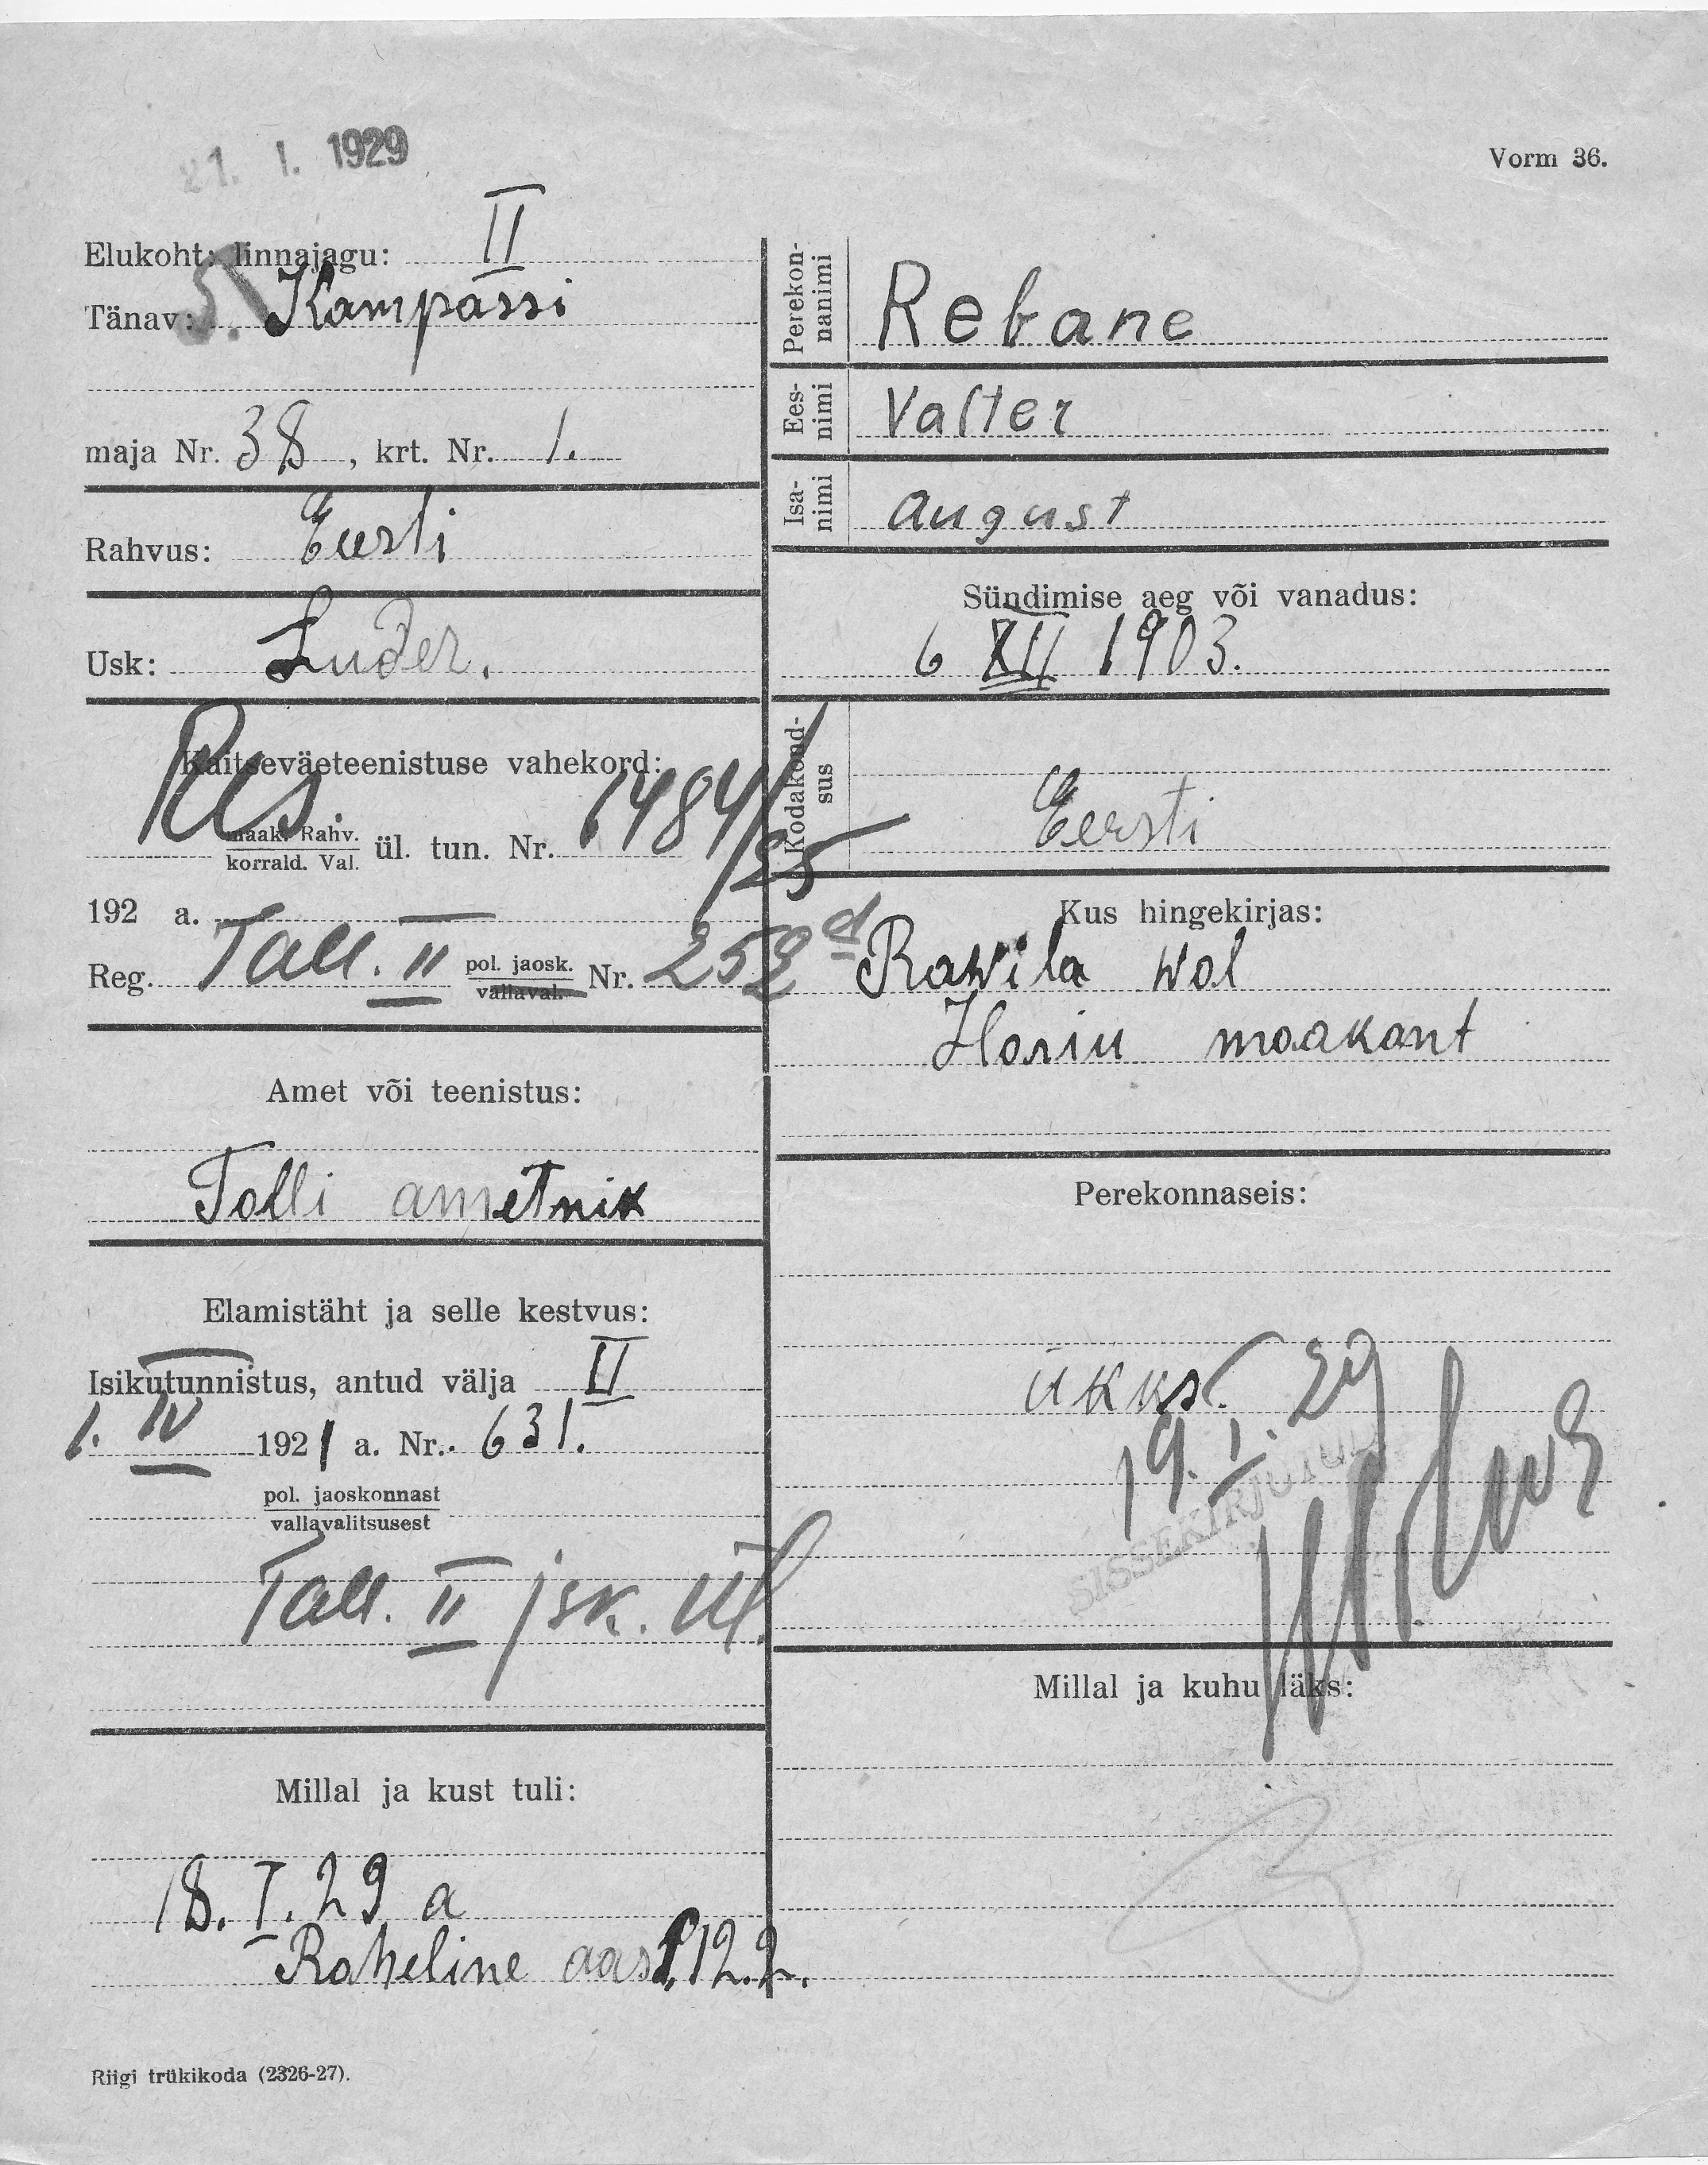 21. I. 1929
Vorm 36.
Elukoht: linnajagu: II
5.
Tänav: Kampassi
maja Nr. 38, krt. Nr. 1.
Rahvus: Eesti
Usk: Luder.
Kaitseväeteenistuse vahekord:
Res.
maak. Rahv.
korrald. Val.
ül. tun. Nr. 6484/25
192 a.
Reg. Tall. II pol. jaosk. Nr.
vallaval.
Amet või teenistus:
Tolli ametnik
Elamistäht ja selle kestvus:
Isikutunnistus, antud välja II
1. IV 1921 a. Nr. 631.
pol. jaoskonnast
vallavalitsusest
Tall. II jsk. ül.
Millal ja kust tuli:
18. I. 29 a
Roheline aas 12.2.
Riigi trükikoda (2326-27).
Perekonnanimi Rebane
Eesnimi Valter
Isanimi August
Sündimise aeg või vanadus:
6 XII 1903.
Kodakondsus
Eesti
Kus hingekirjas:
Rawila wol
Harju maakont
Perekonnaseis:
ükks.
19. I. 29
SISSEKIRJUTUD
Millal ja kuhu läks: